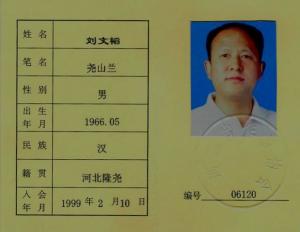 姓名 刘文韬
笔名 尧山兰
性别 男
出生年月 1966.05
民族 汉
籍贯 河北隆尧
入会年月 1999 年 2 月 10 日
编号 06120